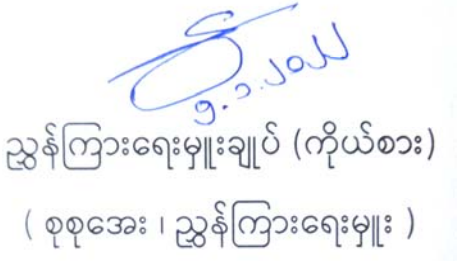 ၅.၁.၂၀၂၂
ညွှန်ကြားရေးမှူးချုပ် (ကိုယ်စား)
( စုစုအေး ၊ ညွှန်ကြားရေးမှူး )